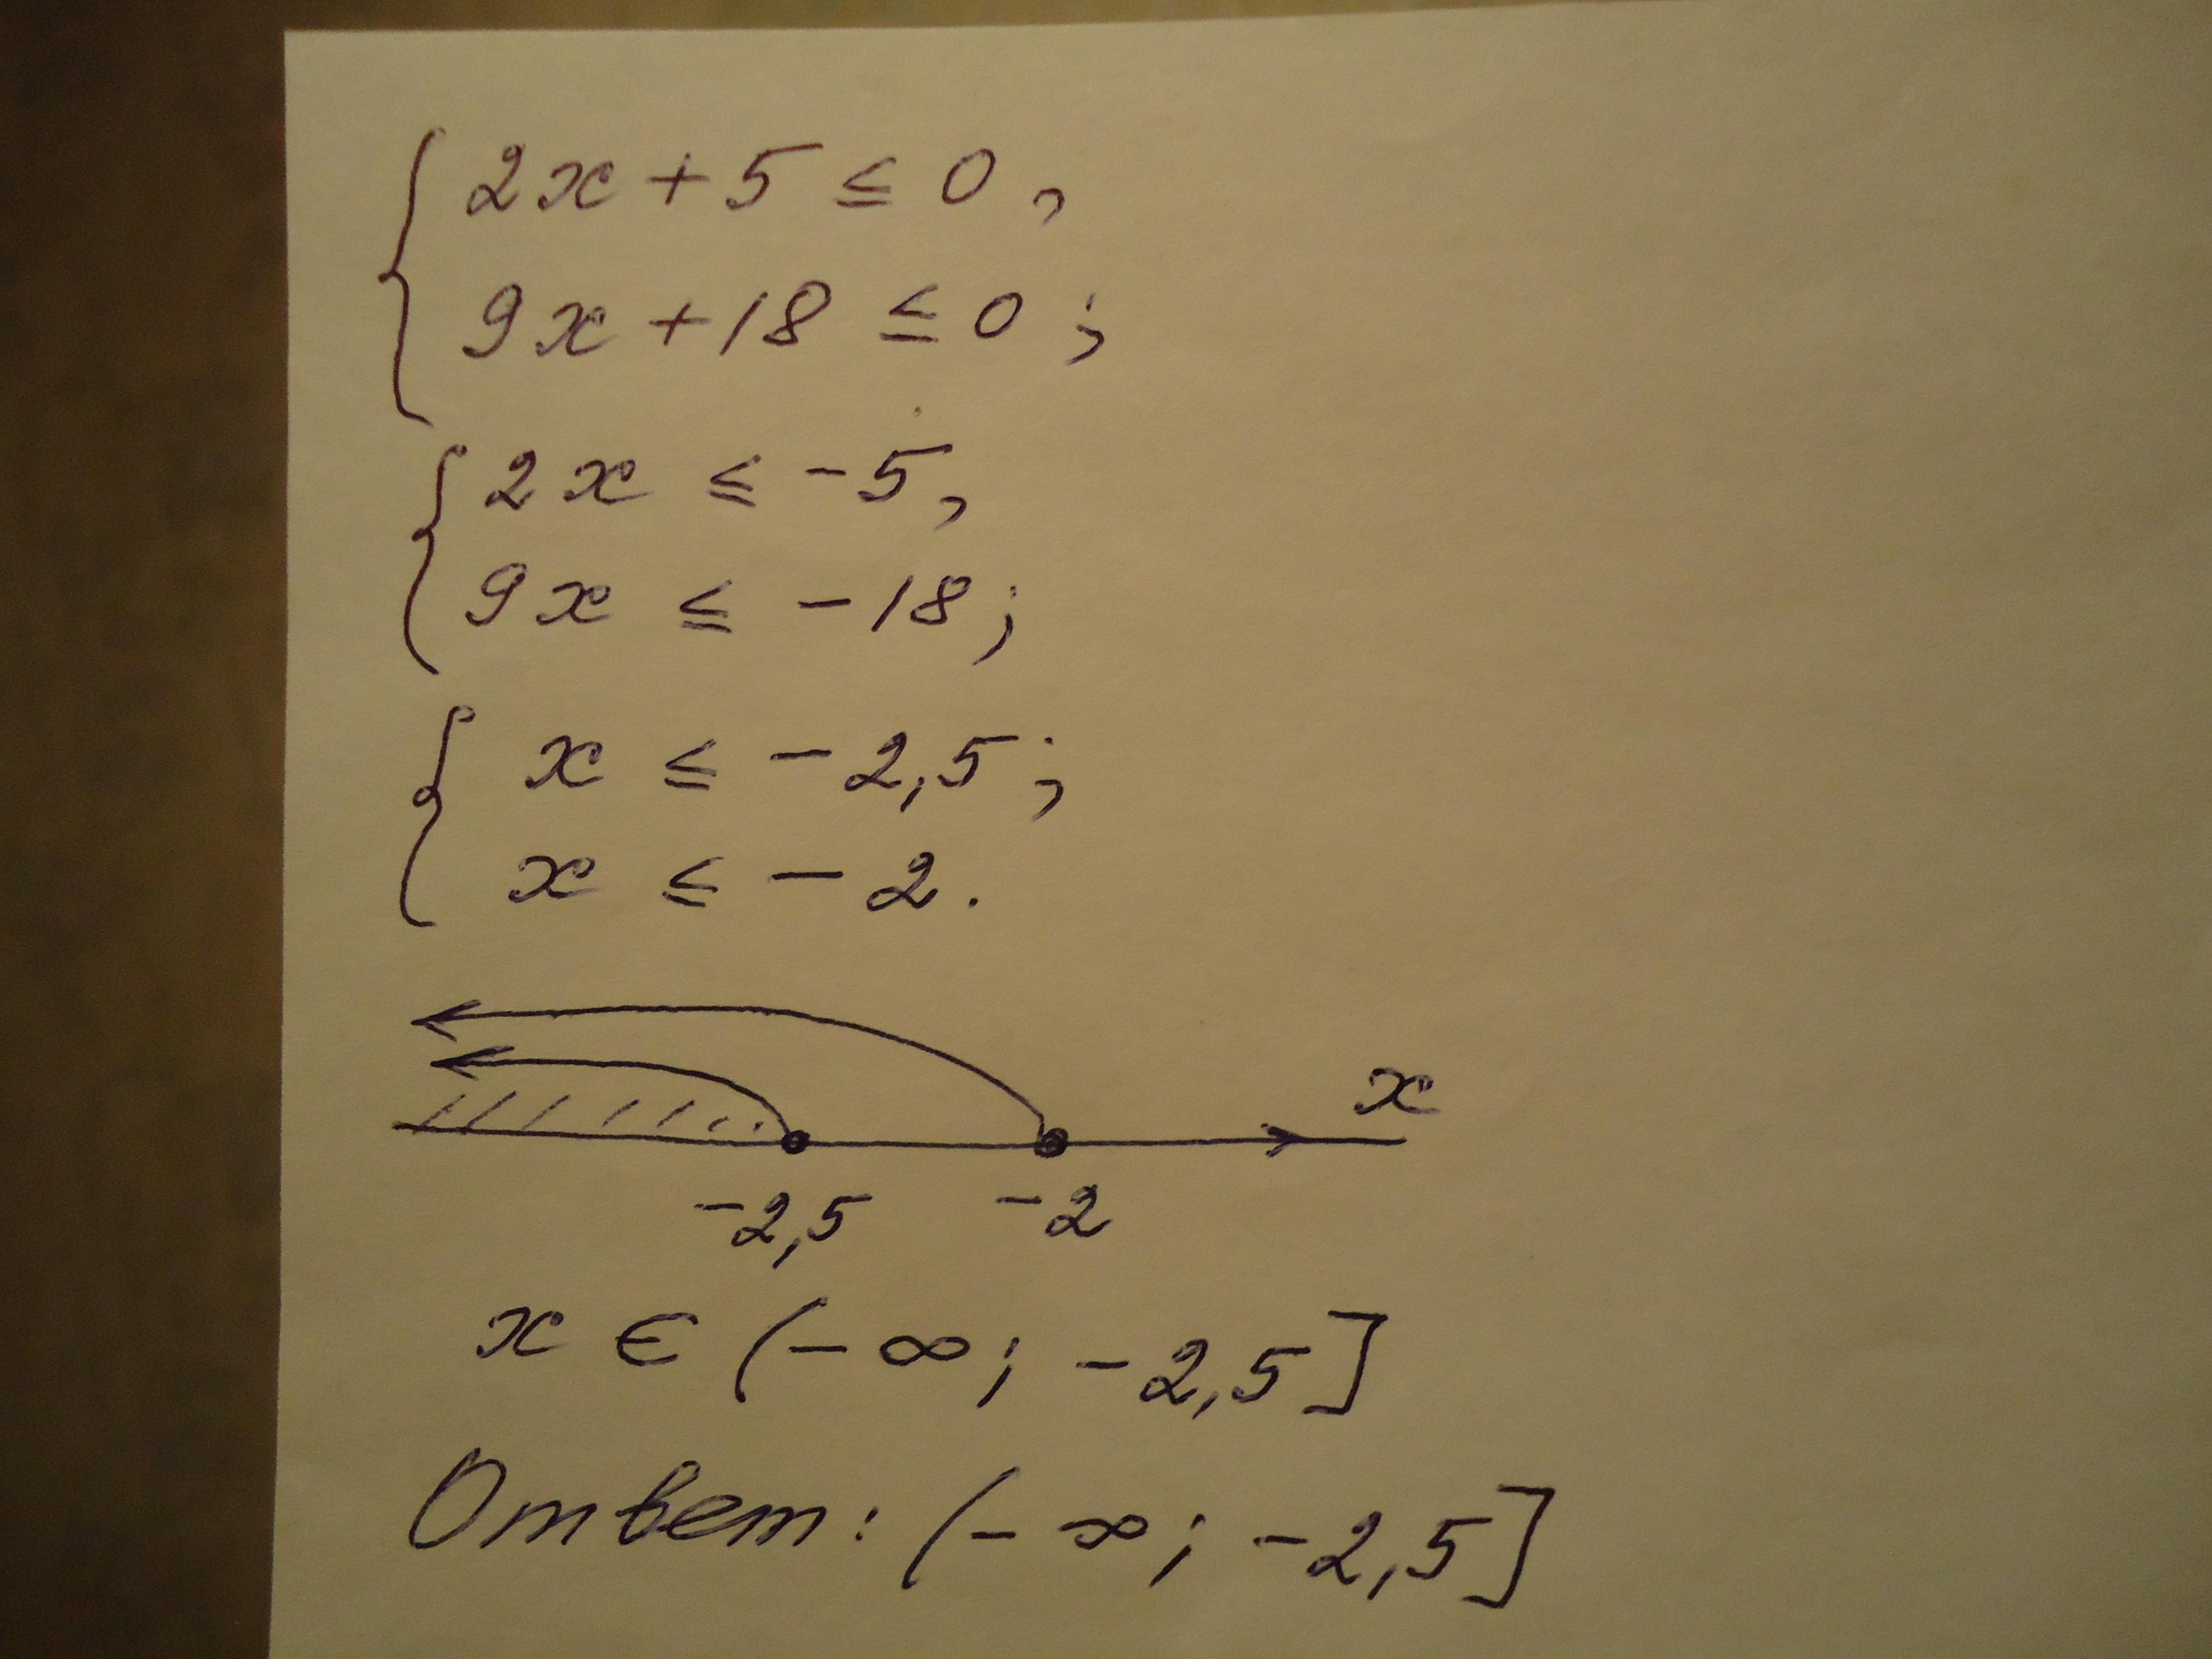 2x + 5 ≤ 0,
9x + 18 ≤ 0;
2x ≤ -5,
9x ≤ -18;
x ≤ -2,5;
x ≤ -2.
x
-2,5 -2
x ∈ (-∞; -2,5]
Ответ: (-∞; -2,5]